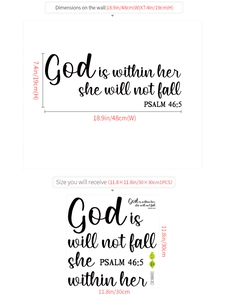 Dimensions on the wall 18.9in/48cm(W)X7.4in/19cm(H)
God is within her
she will not fall
PSALM 46:5
7.4in/19cm(H)
18.9in/48cm(W)
Size you will receive (11.8×11.8in/30×30cm1PCS)
God is
God is within her
she will not fall
will not fall
she PSALM 46:5
within her
11.8in/30cm
11.8in/30cm